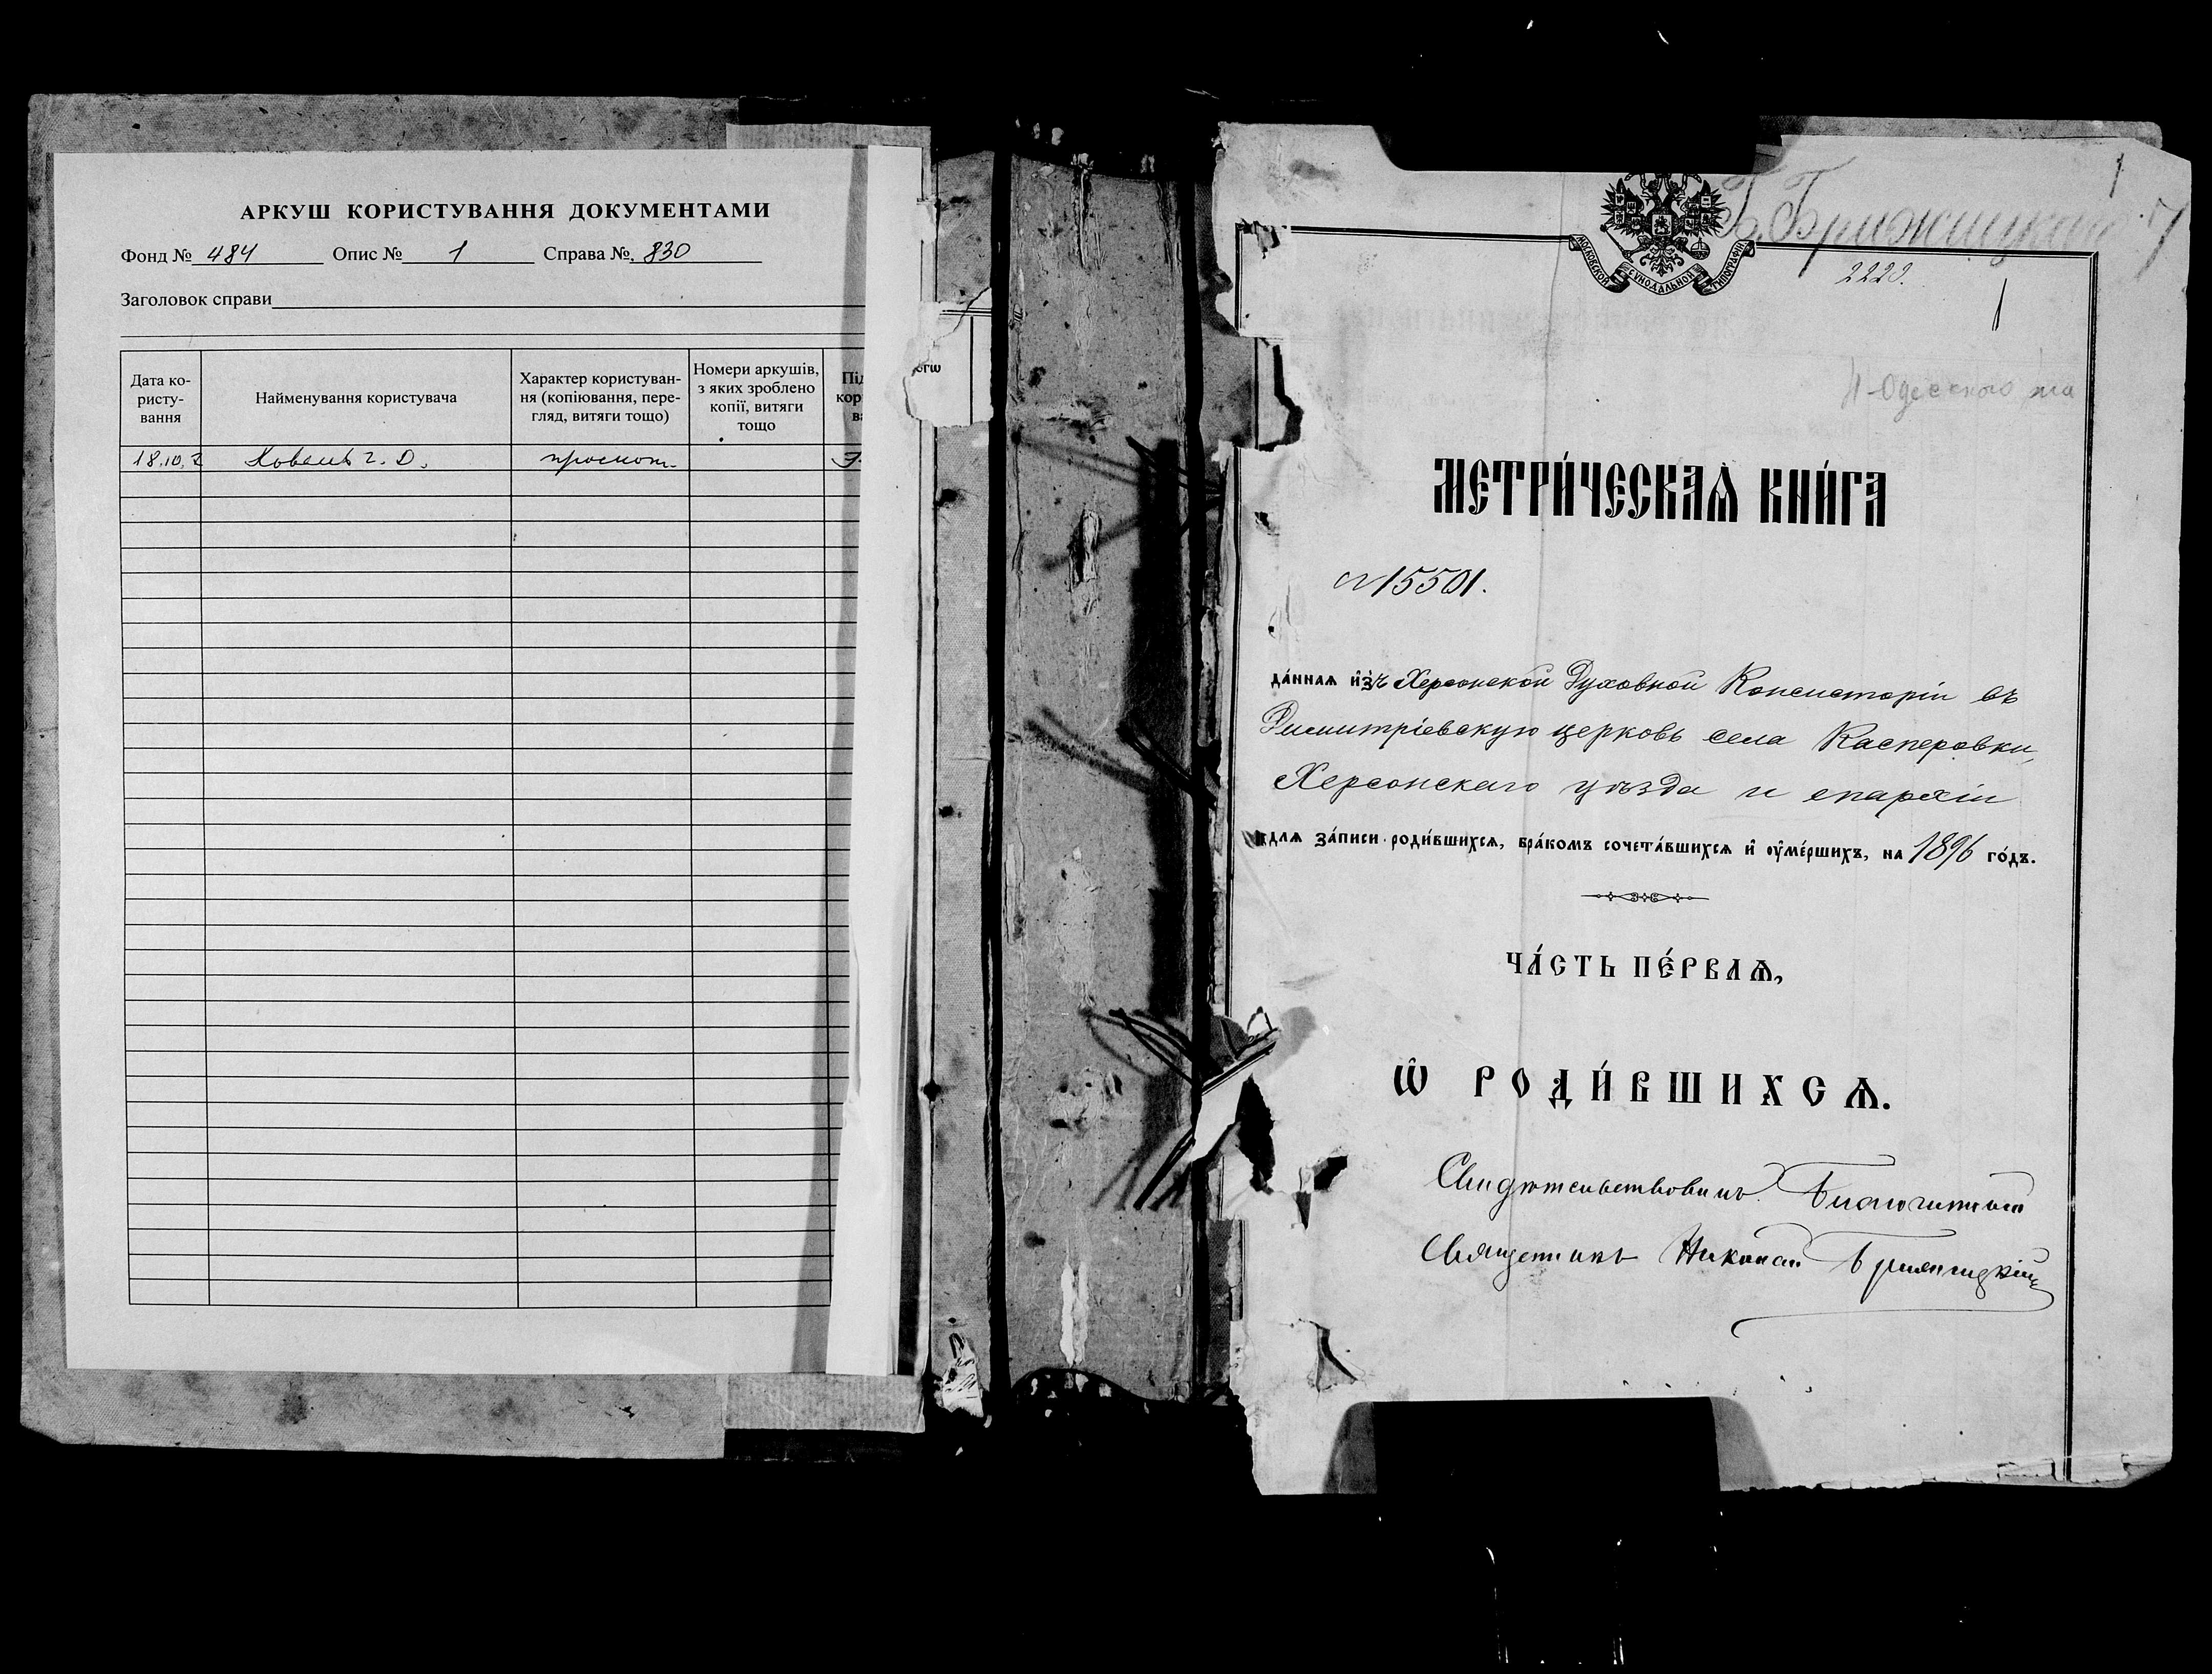 АРКУШ КОРИСТУВАННЯ ДОКУМЕНТАМИ
Фонд № 484 Опис № 1 Справа № 830
Заголовок справи
Дата ко-
ристу-
вання
Найменування користувача
Характер користуван-
ня (копіювання, пере-
гляд, витяги тощо)
Номери аркушів,
з яких зроблено
копії, витяги
тощо
Під
кор
ва
18.10.
МОСКОВСКОЙ СѴНОДАЛЬНОЙ ТИПОГРАФІИ
1
2220.
1
Одесского
МЕТРИ́ЧЕСКАѦ КНИ́ГА
№ 15501.
да́ннаѧ и҆зъ Херсонской Духовной Консисторіи въ
Димитріевскую церковь села Касперовки,
Херсонскаго уѣзда и епархіи
длѧ за́писи роди́вшихсѧ, бра́комъ сочета́вшихсѧ и҆ ᲂу҆ме́ршихъ, на 1896 го́дъ.
ЧА́СТЬ ПЕ́РВАѦ,
Ѽ РОДИ́ВШИХСѦ.
Свидѣтельствовалъ Благочинный
Священникъ Николай Бряжицкій